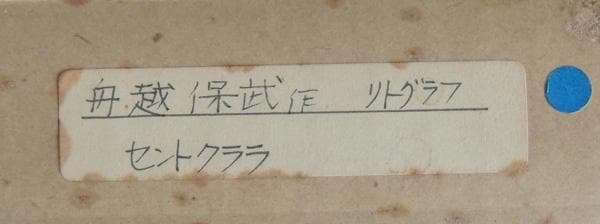 舟越保武作 リトグラフ
セントクララ